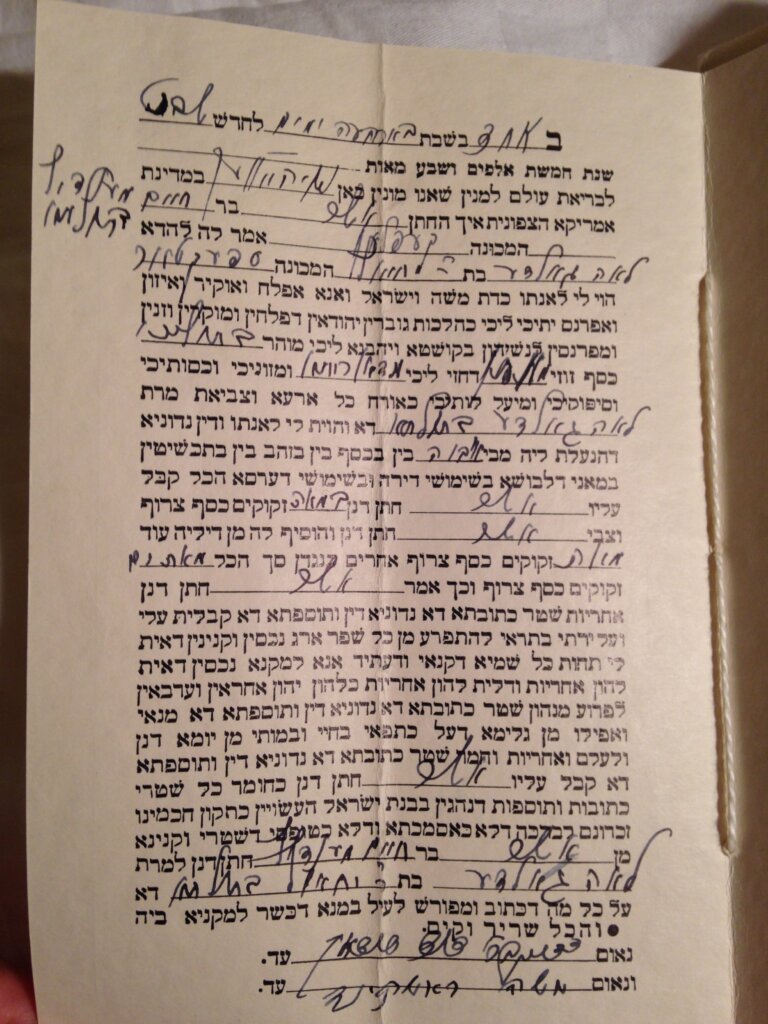 ב אחד בשבת בארבעה ימים לחדש שבט
שנת חמשת אלפים ושבע מאות
לבריאת עולם למנין שאנו מונין כאן במדינת
אמריקא הצפונית איך החתן אשר בר חיים
המכונה אמר לה להדא
לאה גאלדע בת המכונה
הוי לי לאנתו כדת משה וישראל ואנא אפלח ואוקיר ואיזון
ואפרנס יתיכי ליכי כהלכות גוברין יהודאין דפלחין ומוקרין וזנין
ומפרנסין לנשיהון בקושטא ויהבנא ליכי מוהר
כסף זוזי דחזי ליכי ומזוניכי וכסותיכי
וסיפוקיכי ומיעל לותיכי כאורח כל ארעא וצביאת מרת
לאה גאלדע דא והוית לי לאנתו ודין נדוניא
דהנעלת ליה מבי אבוה בין בכסף בין בזהב בין בתכשיטין
במאני דלבושא בשימושי דירה ובשימושי דערסא הכל קבל
עליו אשר חתן דנן במאה זקוקים כסף צרוף
וצבי אשר חתן דנן והוסיף לה מן דיליה עוד
מאה זקוקים כסף צרוף אחרים כנגדן סך הכל מאתים
זקוקים כסף צרוף וכך אמר אשר חתן דנן
אחריות שטר כתובתא דא נדוניא דין ותוספתא דא קבלית עלי
ועל ירתי בתראי להתפרע מן כל שפר ארג נכסין וקנינין דאית
לי תחות כל שמיא דקנאי ודעתיד אנא למקנא נכסין דאית
להון אחריות ודלית להון אחריות כלהון יהון אחראין וערבאין
לפרוע מנהון שטר כתובתא דא נדוניא דין ותוספתא דא מנאי
ואפילו מן גלימא דעל כתפאי בחיי ובמותי מן יומא דנן
ולעלם ואחריות וחמר שטר כתובתא דא נדוניא דין ותוספתא
דא קבל עליו אשר חתן דנן כחומר כל שטרי
כתובות ותוספות דנהגין בבנת ישראל העשויין כתקון חכמינו
זכרונם לברכה דלא כאסמכתא ודלא כטופסי דשטרי וקנינא
מן אשר בר חיים חתן דנן למרת
לאה גאלדע בת דא
על כל מה דכתוב ומפורש לעיל במנא דכשר למקניא ביה
• והכל שריר וקים.
נאום עד.
ונאום משה עד.